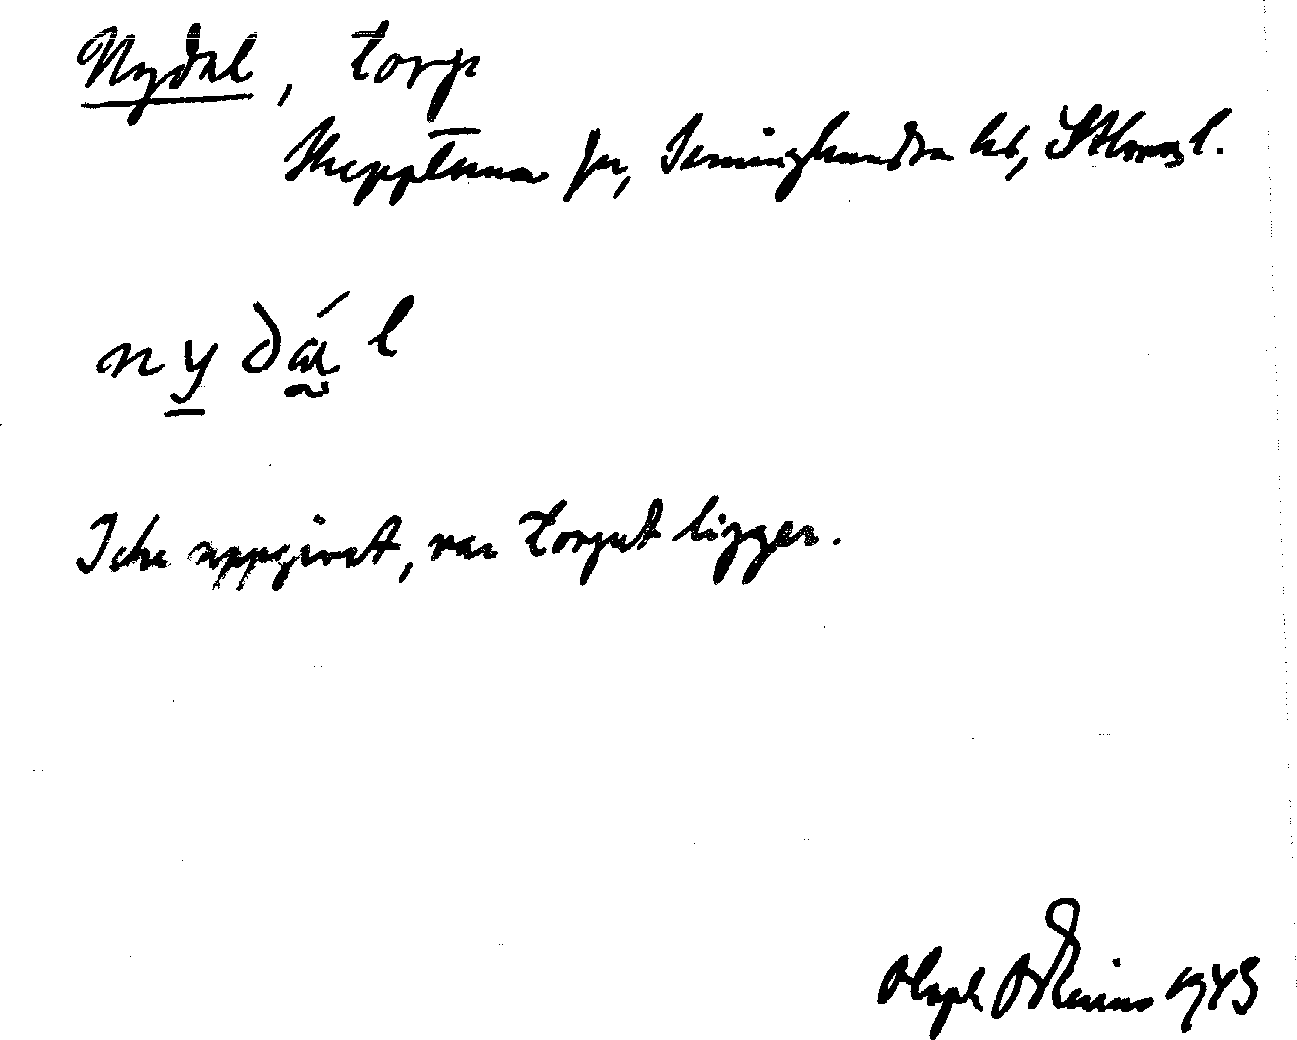 Nydal, torp
Skepptuna sn, Seminghundra hd, Sthms l.
nydál
Icke uppgivet, var torpet ligger.
Olaph Odenius 1943